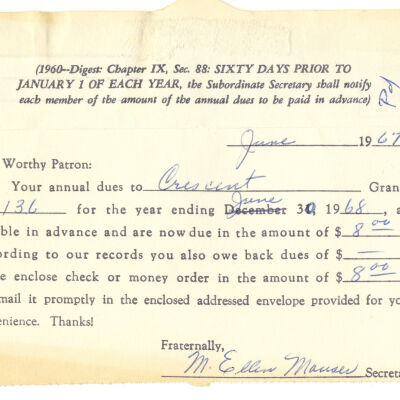 (1960--Digest: Chapter IX, Sec. 88: SIXTY DAYS PRIOR TO
JANUARY 1 OF EACH YEAR, the Subordinate Secretary shall notify
each member of the amount of the annual dues to be paid in advance)
Pd
June 1967
Worthy Patron:
Your annual dues to Crescent Gran
136 for the year ending December 30, 1968, a
June
ble in advance and are now due in the amount of $ 8 00
ording to our records you also owe back dues of $ —
e enclose check or money order in the amount of $ 8 00
mail it promptly in the enclosed addressed envelope provided for yo
enience. Thanks!
Fraternally,
M. Ellen Mauser Secreta